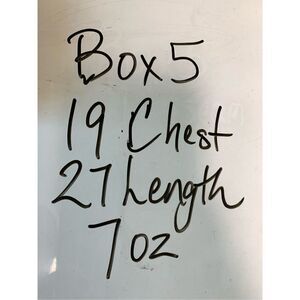 Box 5
19 Chest
27 Length
7 oz